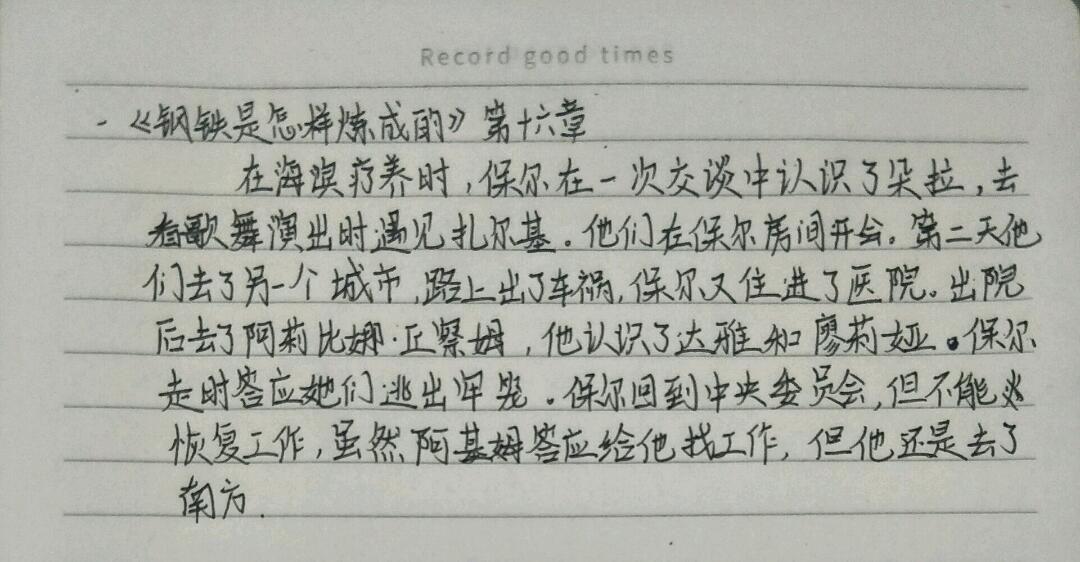 Record good times
- 《钢铁是怎样炼成的》第十六章
在海滨疗养时,保尔在一次交谈中认识了朵拉,去
看歌舞演出时遇见扎尔基。他们在保尔房间开会。第二天他
们去了另一个城市,路上出了车祸,保尔又住进了医院。出院
后去了阿莉比娜·丘察姆,他认识了达雅和廖莉娅。保尔
走时答应她们逃出牢笼。保尔回到中央委员会,但不能
恢复工作,虽然阿基姆答应给他找工作,但他还是去了
南方.